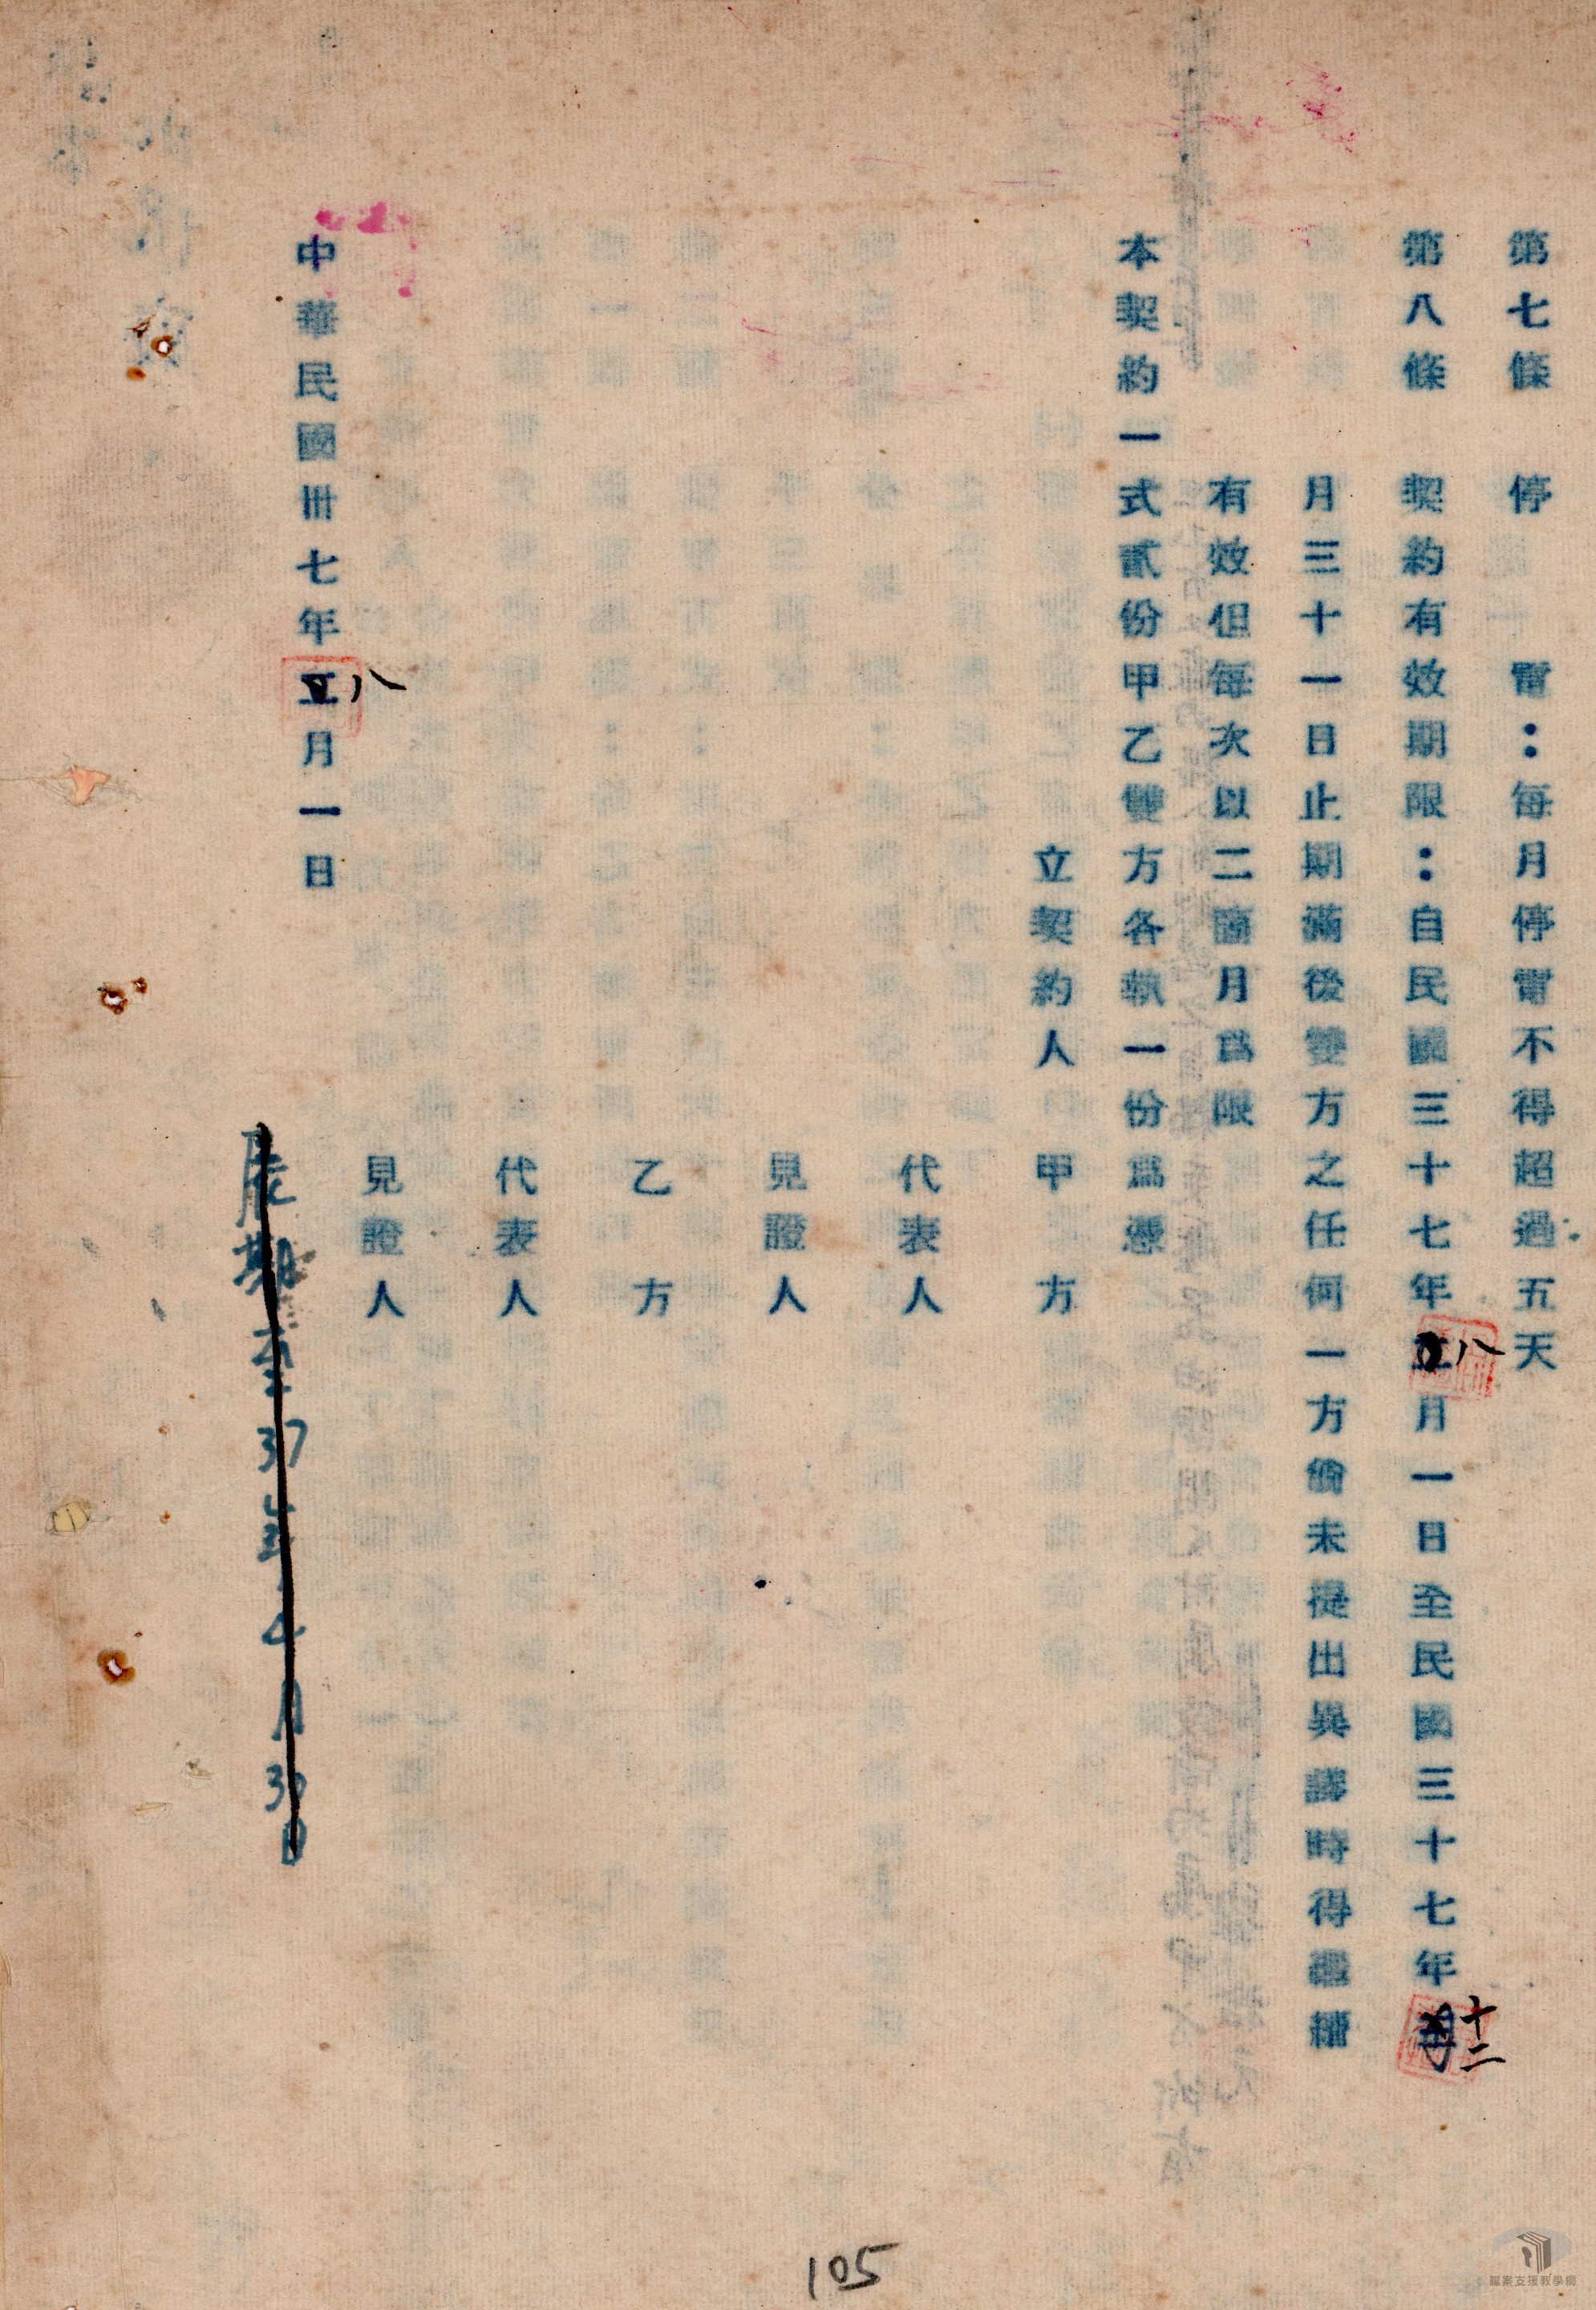 第七條 停 電：每月停電不得超過五天
第八條 契約有效期限：自民國三十七年五八月一日至民國三十七年十二
月三十一日止期滿後雙方之任何一方倘未提出異議時得繼續
有效但每次以二個月為限
本契約一式貳份甲乙雙方各執一份為憑
立契約人 甲 方
代表人
見證人
乙 方
代表人
見證人
中華民國卅七年五八月一日
展期至37年6月30日
105
檔案支援教學網